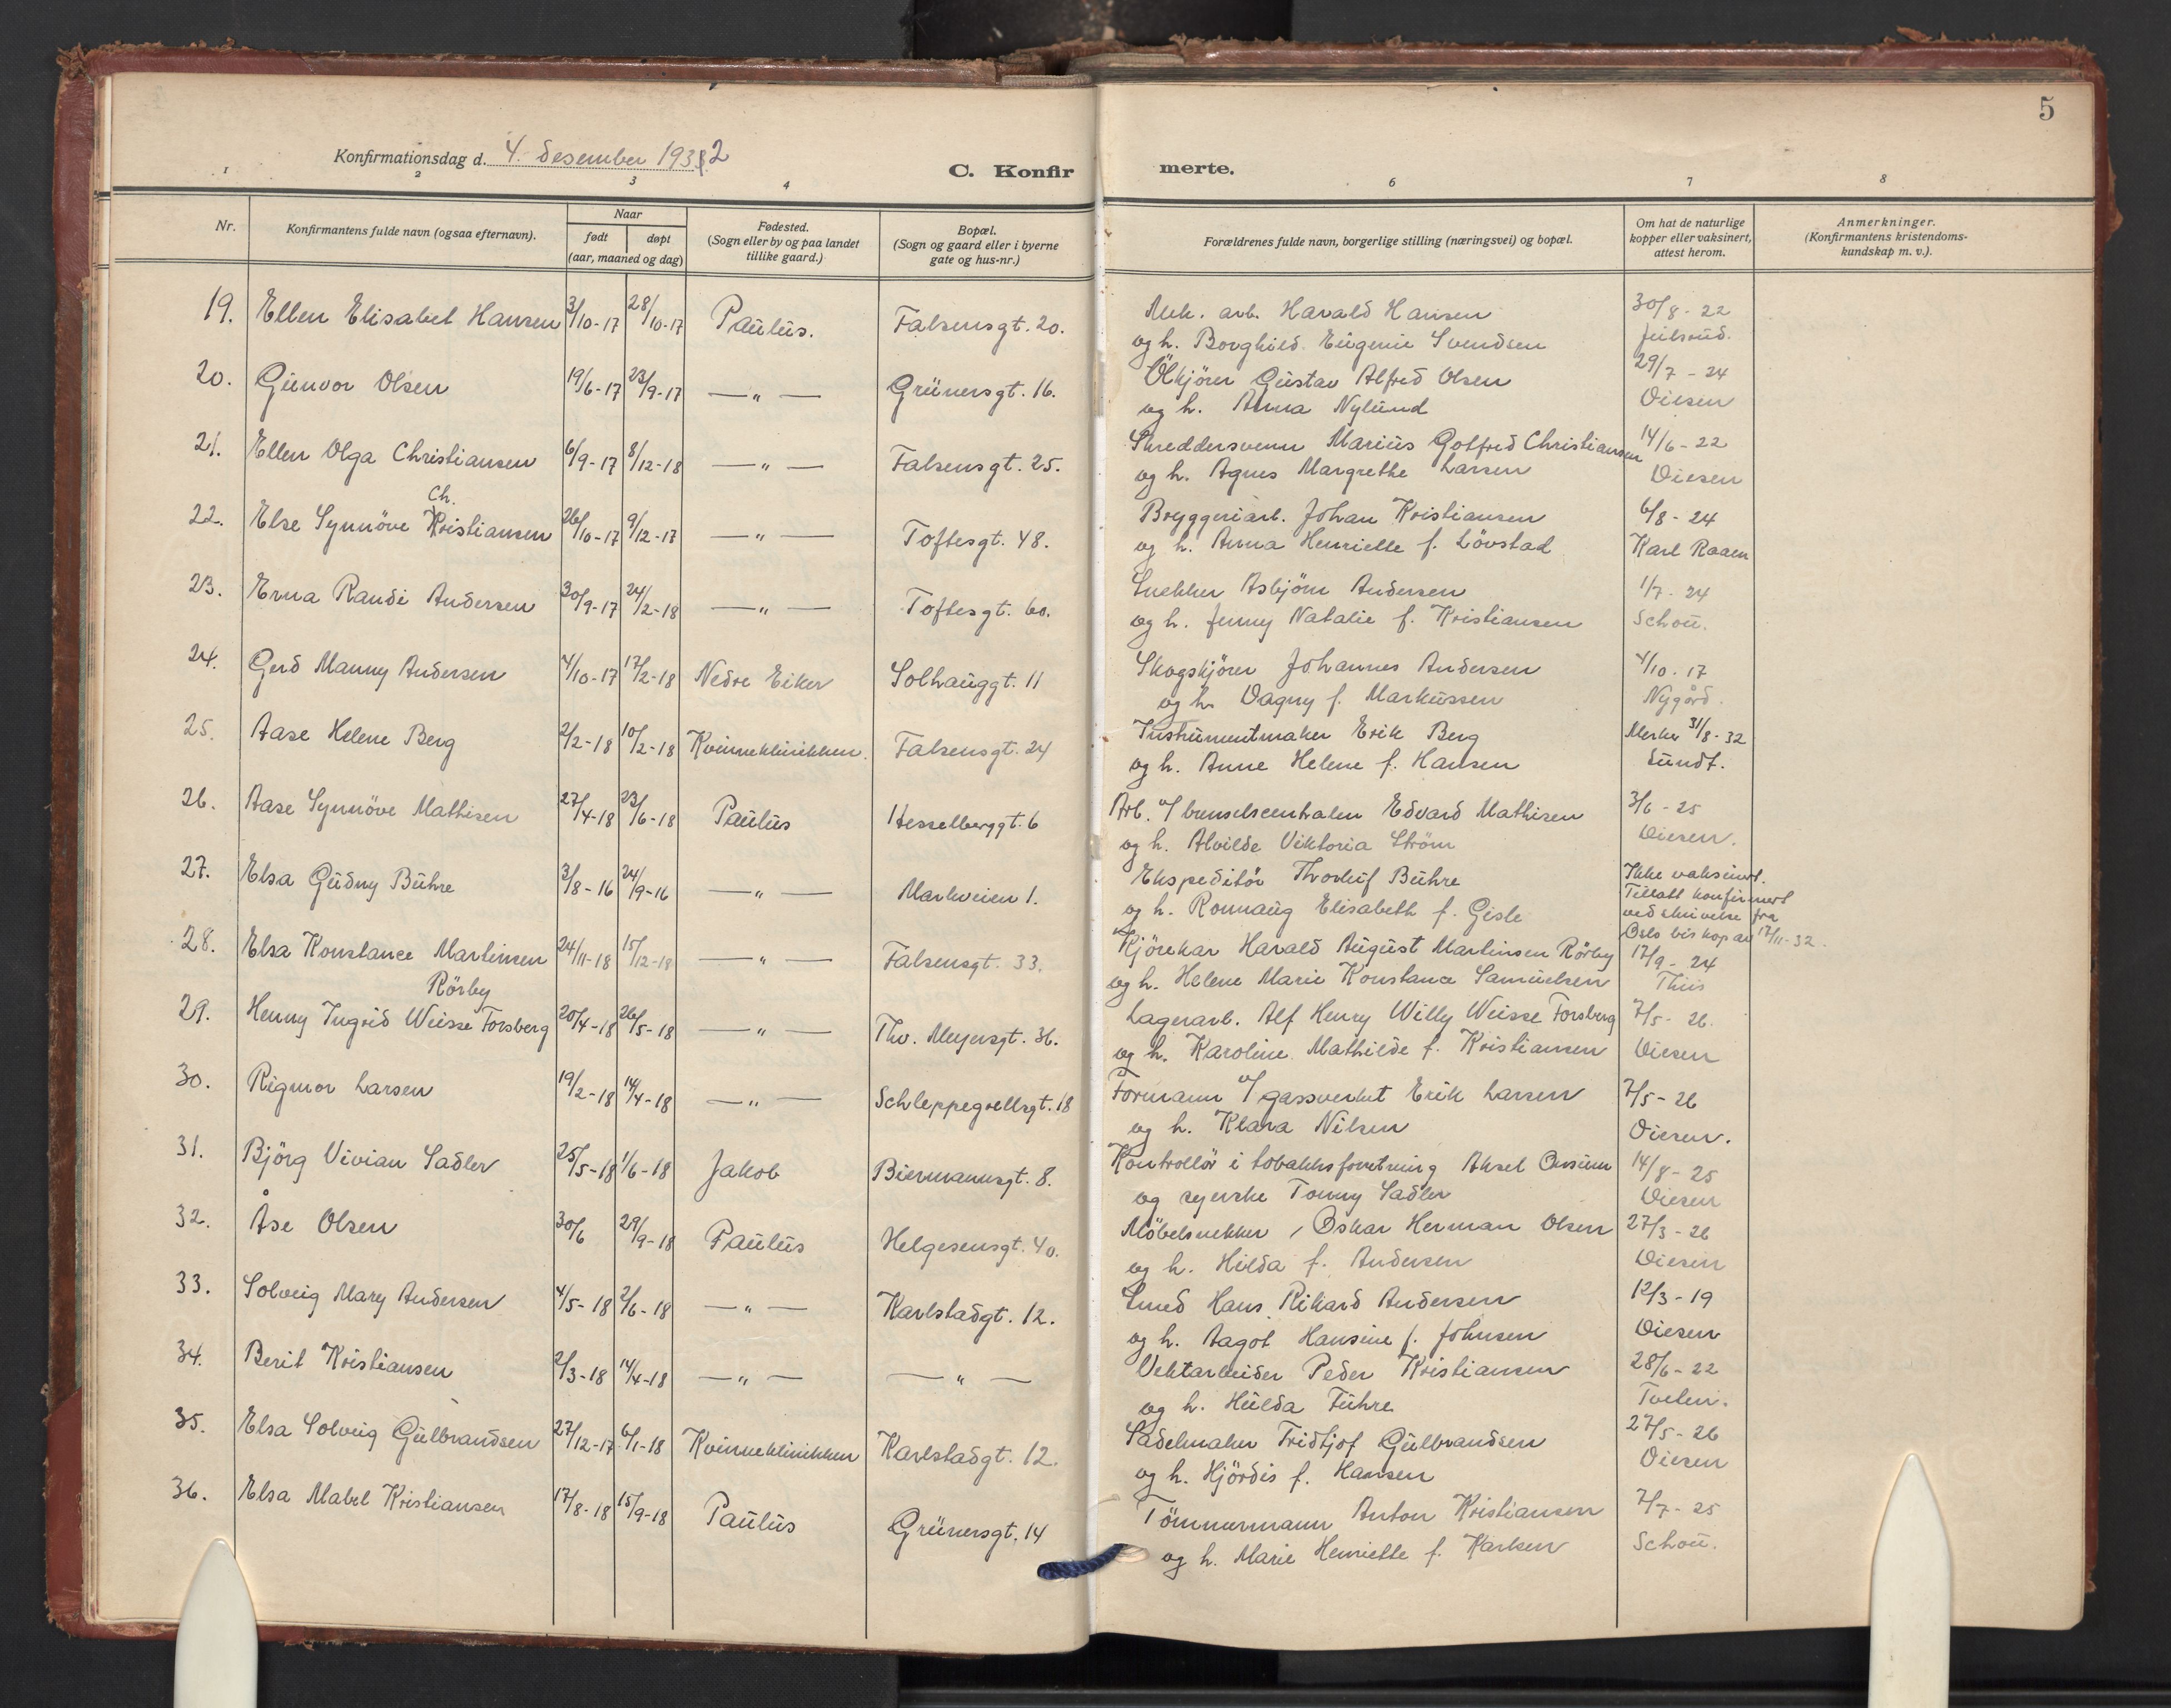 5
Konfirmationsdag d. 4. desember 1932
C. Konfirmerte.
1 2 3 4 6 7 8
Nr.
Konfirmantens fulde navn (ogsaa efternavn).
Naar
født
døpt
(aar, maaned og dag)
Fødested.
(Sogn eller by og paa landet
tillike gaard.)
Bopæl.
(Sogn og gaard eller i byerne
gate og hus-nr.)
Forældrenes fulde navn, borgerlige stilling (næringsvei) og bopæl.
Om hat de naturlige
kopper eller vaksinert,
attest herom.
Anmerkninger.
(Konfirmantens kristendoms-
kundskap m. v.).
19. Ellen Elisabet Hansen 3/10-17 28/10-17 Paulus. Falsensgt. 20. Mek. arb. Harald Hansen 30/8-22
og h. Borghild Eugenie Svendsen Juilsrud.
20. Gunvor Olsen 19/6-17 23/9-17 —„— Grünersgt. 16. Ölkjörer Gustav Alfred Olsen 29/7-24
og h. Anna Nylund Oiesen
21. Ellen Olga Christiansen 6/9-17 8/12-18 —„— Falsensgt. 25. Skreddersvenn Marius Gotfred Christiansen 14/6-22
og h. Agnes Margrethe Larsen Oiesen
Ch.
22. Else Synnöve Kristiansen 26/10-17 9/12-17 —„— Toftesgt. 48. Bryggeriarb. Johan Kristiansen 6/8-24
og h. Anna Henriette f. Lövstad Karl Raaen
23. Erna Randi Andersen 30/9-17 24/2-18 —„— Toftesgt. 60. Snekker Asbjörn Andersen 1/7-24
og h. Jenny Natalie f. Kristiansen Schou.
24. Gerd Manny Andersen 4/10-17 17/2-18 Nedre Eiker Solhauggt. 11 Skogskjörer Johannes Andersen 4/10-17
og h. Dagny f. Markussen Nygård.
25. Aase Helene Berg 2/2-18 10/2-18 Kvinneklinikken. Falsensgt. 24 Instrumentmaker Erik Berg Merker 31/8-32
og h. Anne Helene f. Hansen Sundt.
26. Aase Synnöve Mathisen 27/4-18 23/6-18 Paulus Hesselberggt. 6 Arb. v/ brenselscentralen Edvard Mathisen 3/6-25
og h. Alvilde Viktoria Ström Oiesen.
27. Elsa Gudny Buhre 3/8-16 24/9-16 —„— Markveien 1. Ekspeditör Thorleif Buhre Ikke vaksinert.
Tillatt konfirmert
og h. Ronnaug Elisabeth f. Gisle ved skrivelse fra
Oslo biskop av 17/11-32.
28. Elsa Konstance Martinsen 24/11-18 15/12-18 —„— Falsensgt. 33. Kjörekar Harald August Martinsen Rörby 17/9-24
Rörby og h. Helene Marie Konstance Samuelsen Thiis
29. Henny Ingrid Weisse Forsberg 20/4-18 26/5-18 —„— Thv. Meyersgt. 36. Lagerarb. Alf Henry Willy Weisse Forsberg 7/5-26.
og h. Karoline Mathilde f. Kristiansen Oiesen
30. Rigmor Larsen 19/2-18 14/4-18 —„— Schleppegrellsgt. 18 Formann v/ gassverket Erik Larsen 7/5-26
og h. Klara Nilsen Oiesen.
31. Björg Vivian Sadler 25/5-18 1/6-18 Jakob Biermannsgt. 8. Kontrollör i tobakksforretning Aksel 14/8-25
og syerske Tonny Sadler Oiesen
32. Åse Olsen 30/6 29/9-18 Paulus Helgesensgt. 40. Möbelsnekker Oskar Herman Olsen 27/3-26
og h. Hilda f. Andersen Oiesen
33. Solveig Mary Andersen 4/5-18 2/6-18 —„— Karlstadgt. 12. Smed Hans Rikard Andersen 12/3-19
og h. Aagot Hansine f. Johnsen Oiesen
34. Berit Kristiansen 2/3-18 14/4-18 —„— —„— Vektarbeider Peder Kristiansen 28/6-22
og h. Hulda Fuhre Tveten.
35. Elsa Solveig Gulbrandsen 27/12-17 6/1-18 Kvinneklinikken Karlstadgt. 12. Sadelmaker Fridtjof Gulbrandsen 27/5-26
og h. Hjördis f. Hansen Oiesen
36. Elsa Mabel Kristiansen 17/8-18 15/9-18 Paulus Grünersgt. 14 Tömmermann Anton Kristiansen 7/7-25
og h. Marie Henriette f. Karlsen Schou.